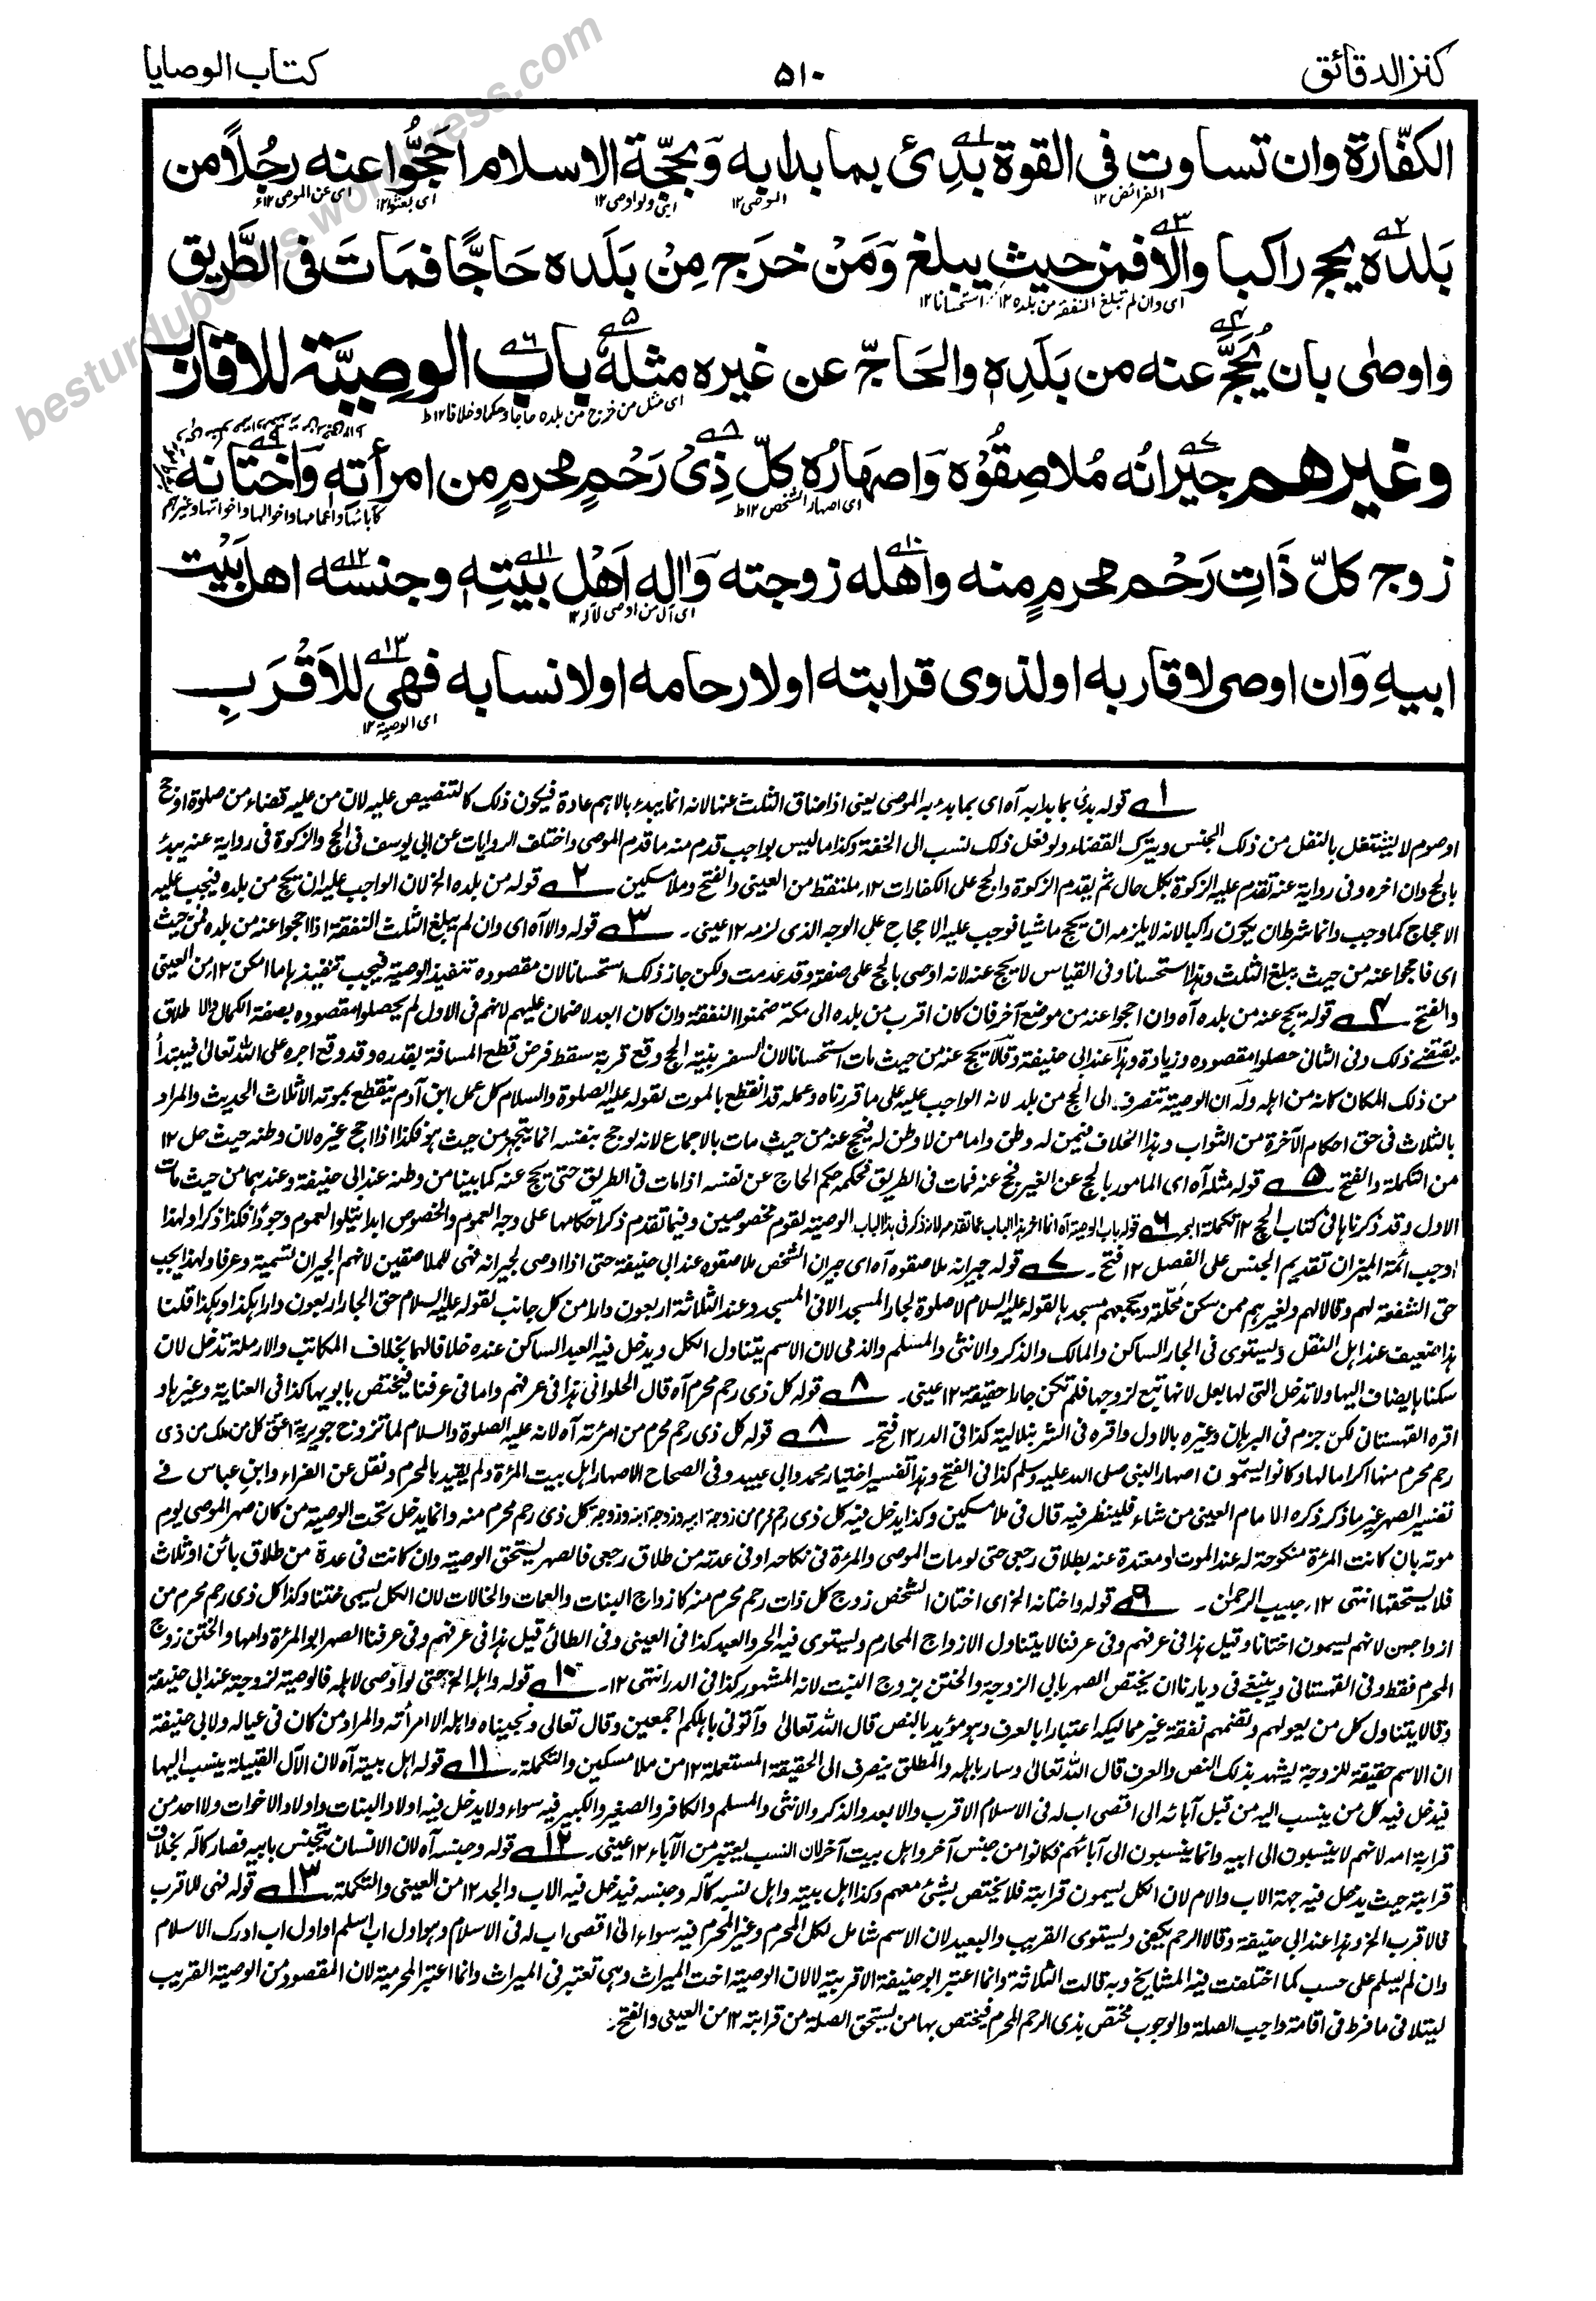 كنز الدقائق
٥١٠
كتاب الوصايا
الكفّارة وان تساوت فى القوة بُدِئ بما بدا به وَبحجّة الاسلام احَجُّوا عنه رجُلاً من
الفرائض ١٢
الموصى ١٢
اى ولو اوصى ١٢
اى بعثوا ١٢
اى عن الموصى ١٢
بَلده يحج راكبا والّا فمن حيث يبلغ وَمَنْ خرَج مِنْ بَلَده حَاجًّا فمَاتَ فى الطَّريق
اى وان لم تبلغ النفقة من بلده ١٢
استحسانا ١٢
واوصٰى بان يُحَجَّ عنه من بَلَدِه والحَاجّ عن غيره مثلُهٗ باب الوصِيَّة للاقارب
اى مثل من خرج من بلده حاجا وحكما وخلافا ١٢ط
وغيرهم جِيْرانُه مُلاصِقُوْه وَاصهَارُه كلّ ذِىْ رَحْمٍ محرمٍ من امرأتهٖ وَاَختانه
اى اصهار الشخص ١٢ط
كآبائها واعمامها واخوالها واخواتها وغيرهم
زوج كلّ ذَاتِ رَحْم محرمٍ منه واَهله زوجته وَاٰله اَهْل بَيْتِه وجنسه اهل بَيْت
اى آل من اوصى لآله ١٢
ابيهِ وَان اوصى لاقاربه او لذوى قرابته او لارحامه او لانسابه فهى للاَقْرَبِ
اى الوصية ١٢
١ قوله بدئ بما بدا به آه اى بما بدء به الموصى يعنى اذا ضاق الثلث عنها لانه انما يبدء بالاهم عادة فيكون ذلك كالتنصيص عليه لان من عليه قضاء من صلوة او حج
او صوم لا يشتغل بالنفل من ذلك الجنس ويترك القضاء ولو فعل ذلك لنسب الى الخفة وكذا ما ليس بواجب قدم منه ما قدم الموصى واختلف الروايات عن ابى يوسف فى الحج والزكوة فى رواية عنه يبدء
بالحج وان اخره وفى رواية عنه تقدم عليه الزكوة بكل حال ثم يقدم الزكوة والحج على الكفارات ١٢ ملتقط من العينى والفتح وملا مسكين ٢ قوله من بلده الخ لان الواجب عليه ان يحج من بلده فيجب عليه
الاحجاج كما وجب وانما شرط ان يكون راكبا لانه لا يلزمه ان يحج ماشيا فوجب عليه الاحجاج على الوجه الذى لزمه ١٢ عينى۔ ٣ قوله والا آه اى وان لم يبلغ الثلث النفقة اذا احجوا عنه من بلده فمن حيث
اى فاحجوا عنه من حيث يبلغ الثلث وهذا استحسانا وفى القياس لا يحج عنه لانه اوصى بالحج على صفة وقد عدمت ولكن جاز ذلك استحسانا لان مقصوده تنفيذ الوصية فيجب تنفيذها ما امكن ١٢ من العينى
والفتح۔ ٤ قوله يحج عنه من بلده آه وان احجوا عنه من موضع آخر فان كان اقرب من بلده الى مكة ضمنوا النفقة وان كان ابعد لا ضمان عليهم لانهم فى الاول لم يحصلوا مقصوده بصفة الكمال والاطلاق
يقتضى ذلك وفى الثانى حصلوا مقصوده وزيادة وهذا عند ابى حنيفة وقالا يحج عنه من حيث مات استحسانا لان السفر بنية الحج وقع قربة سقط فرض قطع المسافة بقدره وقد وقع اجره على الله تعالى فيبتدأ
من ذلك المكان كانه من اهله وله ان الوصية تنصرف الى الحج من بلده لانه الواجب عليه على ما قررناه وعمله قد انقطع بالموت لقوله عليه الصلوة والسلام كل عمل ابن آدم ينقطع بموته الا ثلاث الحديث والمراد
بالثلاث فى حق احكام الآخرة من الثواب وهذا الخلاف فيمن له وطن واما من لا وطن له فيحج عنه من حيث مات بالاجماع لانه لو حج بنفسه انما يتجهز من حيث هو فكذا اذا حج غيره لان وطنه حيث حل ١٢
من التكملة والفتح ٥ قوله مثله آه اى المامور بالحج عن الغير فحج عنه فمات فى الطريق فحكمه حكم الحاج عن نفسه اذا مات فى الطريق حتى يحج عنه كما بينا من وطنه عند ابى حنيفة وعندهما من حيث مات
الاول وقد ذكرناها فى كتاب الحج ١٢ تكملة البحر ٦ قوله باب الوصية آه انما اخر هذا الباب عما تقدم لانه ذكر فى هذا الباب الوصية لقوم مخصوصين وفيما تقدم ذكر احكامها على وجه العموم والخصوص ابدا يتلو العموم وجودًا فكذا ذكرا ولهذا
اوجب ائمة الميزان تقديم الجنس على الفصل ١٢ فتح۔ ٧ قوله جيرانه ملاصقوه آه اى جيران الشخص ملاصقوه عند ابى حنيفة حتى اذا اوصى لجيرانه فهى للملاصقين لانهم الجيران تسمية وعرفا ولهذا يجب
حق الشفعة لهم وقالا لهم ولغيرهم ممن سكن محلة ويجمعهم مسجدها لقوله عليه السلام لا صلوة لجار المسجد الا فى المسجد وعند الثلاثة اربعون دارا من كل جانب لقوله عليه السلام حق الجار اربعون دارا هكذا وهكذا قلنا
هذا ضعيف عند اهل النقل ويستوى فى الجار الساكن والمالك والذكر والانثى والمسلم والذمى لان الاسم يتناول الكل ويدخل فيه العبد الساكن عنده خلافا لهما بخلاف المكاتب والارملة تدخل لان
سكناها يضاف اليها ولا تدخل التى لها بعل لانها تبع لزوجها فلم تكن جارا حقيقة ١٢ عينى۔ ٨ قوله كل ذى رحم محرم آه قال الحلوانى هذا فى عرفهم واما فى عرفنا فيختص بابويها كذا فى العناية وغيرها و
اقره القهستانى لكن جزم فى البرهان وغيره بالاول واقره فى الشرنبلالية كذا فى الدر ١٢ فتح۔ ٨ قوله كل ذى رحم محرم من امرئته آه لانه عليه الصلوة والسلام لما تزوج جويرية اعتق كل من ملك من ذى
رحم محرم منها اكراما لها وكانوا يسمّون اصهار النبى صلى الله عليه وسلم كذا فى الفتح وهذا تفسير اختيار محمد وابى عبيد وفى الصحاح الاصهار اهل بيت المرءة ولم يقيد بالمحرم ونقل عن الفراء وابن عباس فى
تفسير الصهر غير ما ذكر ذكره الامام العينى من شاء فلينظر فيه قال فى ملا مسكين وكذا يدخل فيه كل ذى رحم محرم من زوجة ابيه وزوجة ابنه وزوجة كل ذى رحم محرم منه وانما يدخل تحت الوصية من كان صهر الموصى يوم
موته بان كانت المرءة منكوحة له عند الموت او معتدة عنه بطلاق رجعى حتى لو مات الموصى والمرءة فى نكاحه او فى عدته من طلاق رجعى فالصهر يستحق الوصية وان كانت فى عدة من طلاق بائن او ثلاث
فلا يستحقها انتهى ١٢ حبيب الرحمن۔ ٩ قوله واختانه الخ اى اختان الشخص زوج كل ذات رحم محرم منه كازواج البنات والعمات والخالات لان الكل يسمى ختنا وكذا كل ذى رحم محرم من
ازواجهن لانهم يسمون اختانا وقيل هذا فى عرفهم وفى عرفنا لا يتناول الا زواج المحارم ويستوى فيه الحر والعبد كذا فى العينى وفى الطائى قيل هذا فى عرفهم وفى عرفنا الصهر ابو المرءة وامها والختن زوج
المحرم فقط وفى القهستانى وينبغى فى ديارنا ان يختص الصهر بابى الزوجة والختن بزوج البنت لانه المشهور كذا فى الدر انتهى ١٢۔ ١٠ قوله واهله الخ حتى لو اوصى لاهله فالوصية لزوجته عند ابى حنيفة
وقالا يتناول كل من يعولهم وتضمهم نفقة غير مماليكه اعتبارا بالعرف وهو مؤيد بالنص قال الله تعالى وأتونى باهلكم اجمعين وقال تعالى ونجيناه واهله الا امرأته والمراد من كان فى عياله ولابى حنيفة
ان الاسم حقيقة للزوجة يشهد بذلك النص والعرف قال الله تعالى وسار باهله والمطلق ينصرف الى الحقيقة المستعملة ١٢ من ملا مسكين والتكملة۔ ١١ قوله اهل بيته آه لان الآل القبيلة ينسب اليها
فيدخل فيه كل من ينسب اليه من قبل آبائه الى اقصى اب له فى الاسلام الاقرب والابعد والذكر والانثى والمسلم والكافر والصغير والكبير فيه سواء ولا يدخل فيه اولاد البنات واولاد الاخوات ولا احد من
قرابة امه لانهم لا ينسبون الى ابيه وانما ينسبون الى آبائهم فكانوا من جنس آخر واهل بيت آخر لان النسب يعتبر من الآباء ١٢ عينى۔ ١٢ قوله وجنسه آه لان الانسان يتجنس بابيه فصار كآله بخلاف
قرابته حيث يدخل فيه جهة الاب والام لان الكل يسمون قرابته فلا يختص بشئ معهم وكذا اهل بيته واهل نسبه كآله وجنسه فيدخل فيه الاب والجد ١٢ من العينى والتكملة۔ ١٣ قوله فهى للاقرب
فالاقرب الخ وهذا عند ابى حنيفة وقالا الرحم يكفى ويستوى القريب والبعيد لان الاسم شامل لكل المحرم وغير المحرم فيه سواء الى اقصى اب له فى الاسلام وهو اول اب اسلم او اول اب ادرك الاسلام
وان لم يسلم على حسب كما اختلفت فيه المشايخ وبه قالت الثلاثة وانما اعتبر ابو حنيفة الاقربية لان الوصية اخت الميراث وهى تعتبر فى الميراث وانما اعتبر المحرمية لان المقصود من الوصية القريب
ليتلافى ما فرط فى اقامة واجب الصلة والوجوب مختص بذى الرحم المحرم فيختص بها من يستحق الصلة من قرابته ١٢ من العينى والفتح۔
besturdubooks.wordpress.com